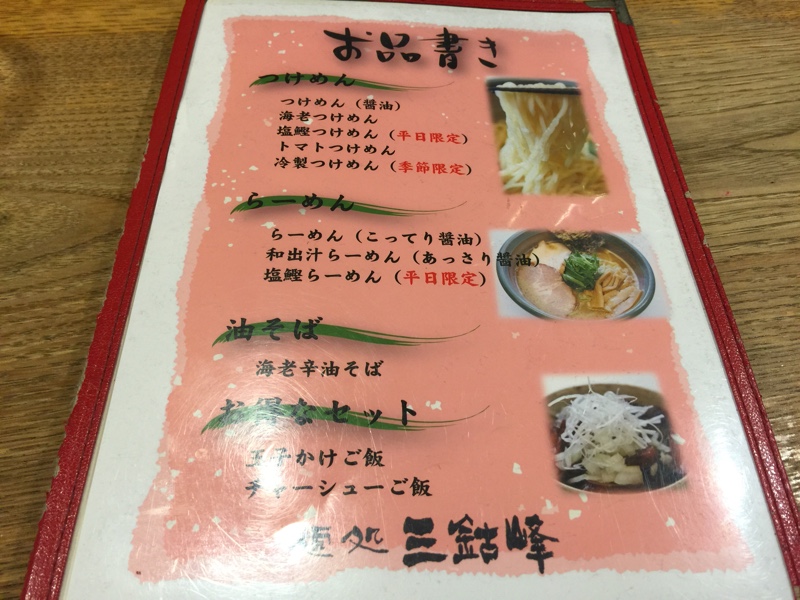 お品書き
つけめん
つけめん（醤油）
海老つけめん
塩鰹つけめん（平日限定）
トマトつけめん
冷製つけめん（季節限定）
らーめん
らーめん（こってり醤油）
和出汁らーめん（あっさり醤油）
塩鰹らーめん（平日限定）
油そば
海老辛油そば
お得なセット
玉子かけご飯
チャーシューご飯
麺処 三鈷峰